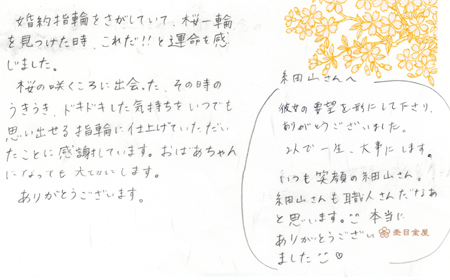 婚約指輪をさがしていて、桜一輪
を見つけた時、これだ!!と運命を感
じました。
桜の咲くころに出会った、その時の
うきうき、ドキドキした気持ちをいつでも
思い出せる指輪に仕上げていただい
たことに感謝しています。おばあちゃん
になっても大切にします。
ありがとうございます。
細田山さんへ
彼女の要望を形にして下さり、
ありがとうございました。
2人で一生、大事にします。
いつも笑顔の細田山さん。
細田山さんも職人さんだなあ
と思います。 本当に
ありがとうござい
ました♡
杢目金屋